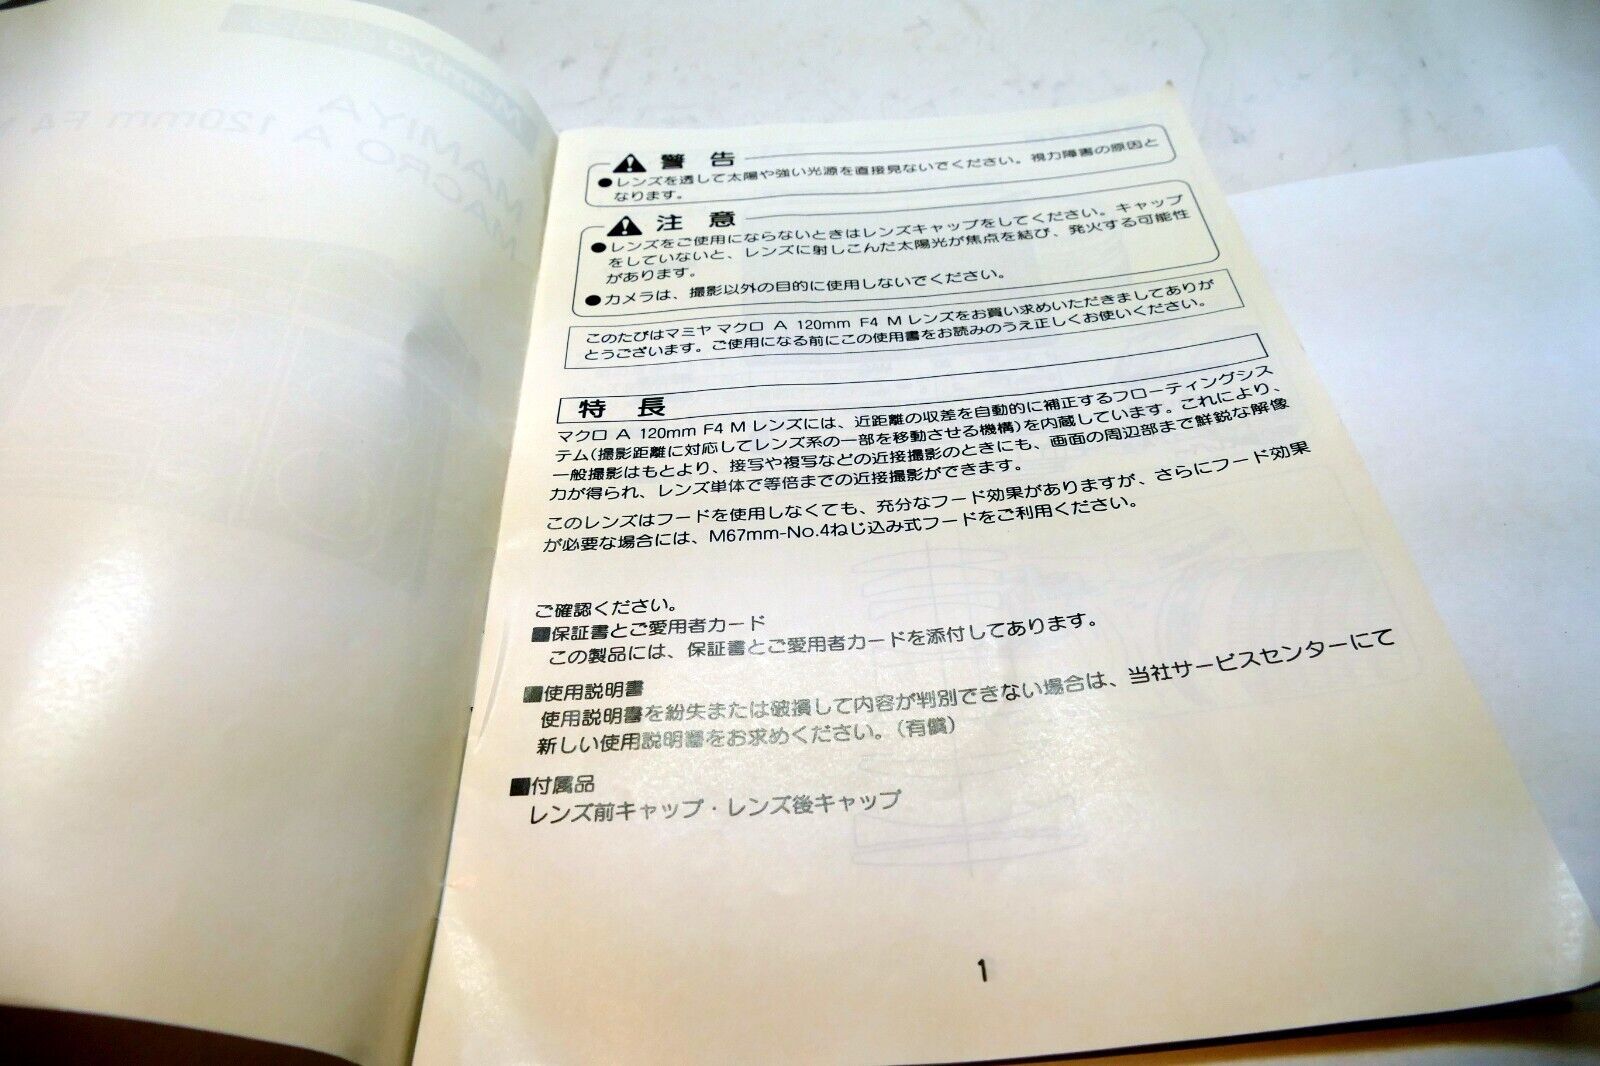 警告
●レンズを透して太陽や強い光源を直接見ないでください。視力障害の原因と
なります。
注意
●レンズをご使用にならないときはレンズキャップをしてください。キャップ
をしていないと、レンズに射しこんだ太陽光が焦点を結び、発火する可能性
があります。
●カメラは、撮影以外の目的に使用しないでください。
このたびはマミヤ マクロ A 120mm F4 M レンズをお買い求めいただきましてありが
とうございます。ご使用になる前にこの使用書をお読みのうえ正しくお使いください。
特長
マクロ A 120mm F4 M レンズには、近距離の収差を自動的に補正するフローティングシス
テム(撮影距離に対応してレンズ系の一部を移動させる機構)を内蔵しています。これにより、
一般撮影はもとより、接写や複写などの近接撮影のときにも、画面の周辺部まで鮮鋭な解像
力が得られ、レンズ単体で等倍までの近接撮影ができます。
このレンズはフードを使用しなくても、充分なフード効果がありますが、さらにフード効果
が必要な場合には、M67mm-No.4ねじ込み式フードをご利用ください。
ご確認ください。
■保証書とご愛用者カード
この製品には、保証書とご愛用者カードを添付してあります。
■使用説明書
使用説明書を紛失または破損して内容が判別できない場合は、当社サービスセンターにて
新しい使用説明書をお求めください。(有償)
■付属品
レンズ前キャップ・レンズ後キャップ
1
MAMIYA
MACRO A 120mm F4